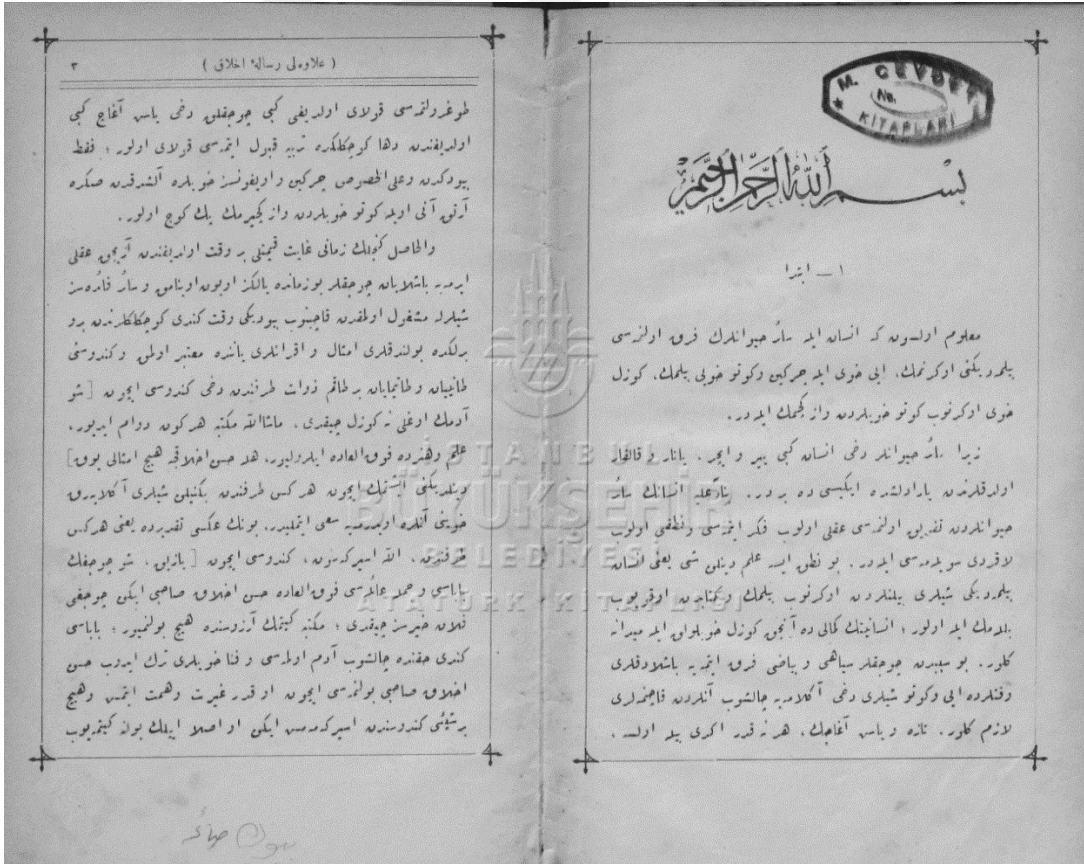 M. CEVDET
No.
KİTAPLARI
بسم الله الرحمن الرحيم
١ ـ ابتدا
معلوم اولسون که انسان ایله سائر حیوانلرك فرق اولنمه‌سی
بیلمدیكنی اوكرنمك، ایی خوی ایله چركین وكوتو خویی بیلمك، كوزل
خوی اوكرنوب كوتو خویلردن واز كچمك ایله در.
زیرا سائر حیوانلر دخی انسان كبی ییر و ایچر. یاتار و قالقار
اولدقلرندن یارادلشده ایكیسی ده بر در. بناءً علیه انسانك سائر
حیوانلردن تفریق اولنمه‌سی عقلی اولوب فكر ایتمه‌سی و نطقی اولوب
لاقردی سویله‌مه‌سی ایله در. بو نطق ایسه علم دینلن شی یعنی انسان
بیلمدیكی شیلری بیلنلردن اوكرنوب بیلمك و كتابدن اوقویوب
بللامك ایله اولور؛ انسانیتك كمالی ده آنجق كوزل خویلولق ایله میدانه
كلور. بو سببدن چوجقلر سیاهی و بیاضی فرق ایتمه‌یه باشلادقلری
وقتلرده ایی وكوتو شیلری دخی آكلامه‌یه چالشوب آنلردن قاچنمه‌لری
لازم كلور. تازه و یاش آغاجك، هر نه قدر اكری بیله اولسه،
( علاوه‌لی رسالهٔ اخلاق )
٣
طوغرولتمه‌سی قولای اولدیغی كبی چوجقلق دخی یاش آغاج كبی
اولدیغندن دها كوچكلكده تربیه قبول ایتمه‌سی قولای اولور؛ فقط
بیودكدن وعلی الخصوص چركین و اویغونسز خویلره آلشدقدن صكره
آرتق آنی اویله كوتو خویلردن واز كچیرمك پك كوج اولور.
والحاصل كنجلك زمانی غایت قیمتلی بر وقت اولدیغندن آزیجق عقلی
ایرمه‌یه باشلایان چوجقلر بو زمانده یالكز اویون اوینامق و سائر فائده‌سز
شیلرله مشغول اولمقدن قاچینوب بیودیكی وقت كندی كوچكلكلرندن برو
برلكده بولندقلری امثال و اقرانلری یاننده معتبر اولمق و كندوسنی
طانییان و طانیمایان بر طاقم ذوات طرفندن دخی كندوسی ایچون [ شو
آدمك اوغلی نه كوزل چیقدی. ماشاالله مكتبه هركون دوام ایدیور،
علم وهنرده فوق العاده ایلرولیور، هله حسن اخلاقجه هیچ امثالی یوق ]
دینلدیكنی ایشتمك ایچون هركس طرفندن بكنیلن شیلری آكلایه‌رق
خوینی آنلره اویدرمه‌یه سعی ایتملیدر. بونك عكسی تقدیرده یعنی هركس
طرفندن، الله اسیركه‌سون، كندوسی ایچون [ یازیق، شو چوجغك
باباسی و جمله عائله‌سی فوق العاده حسن اخلاق صاحبی ایكن چوجغی
فلان خیرسز چیقدی؛ مكتبه كیتمك آرزوسنده هیچ بولنمیور؛ باباسی
كندی حقنده چالشوب آدم اولمه‌سی و فنا خویلری ترك ایدوب حسن
اخلاق صاحبی بولنمه‌سی ایچون او قدر غیرت و همت ایتمش وهیچ
بر شیئی كندوسندن اسیركه‌مه‌مش ایكن او اصلا اییلك یولنه كیتمیوب
İSTANBUL
BÜYÜKŞEHİR
BELEDİYESİ
ATATÜRK KİTAPLIĞI